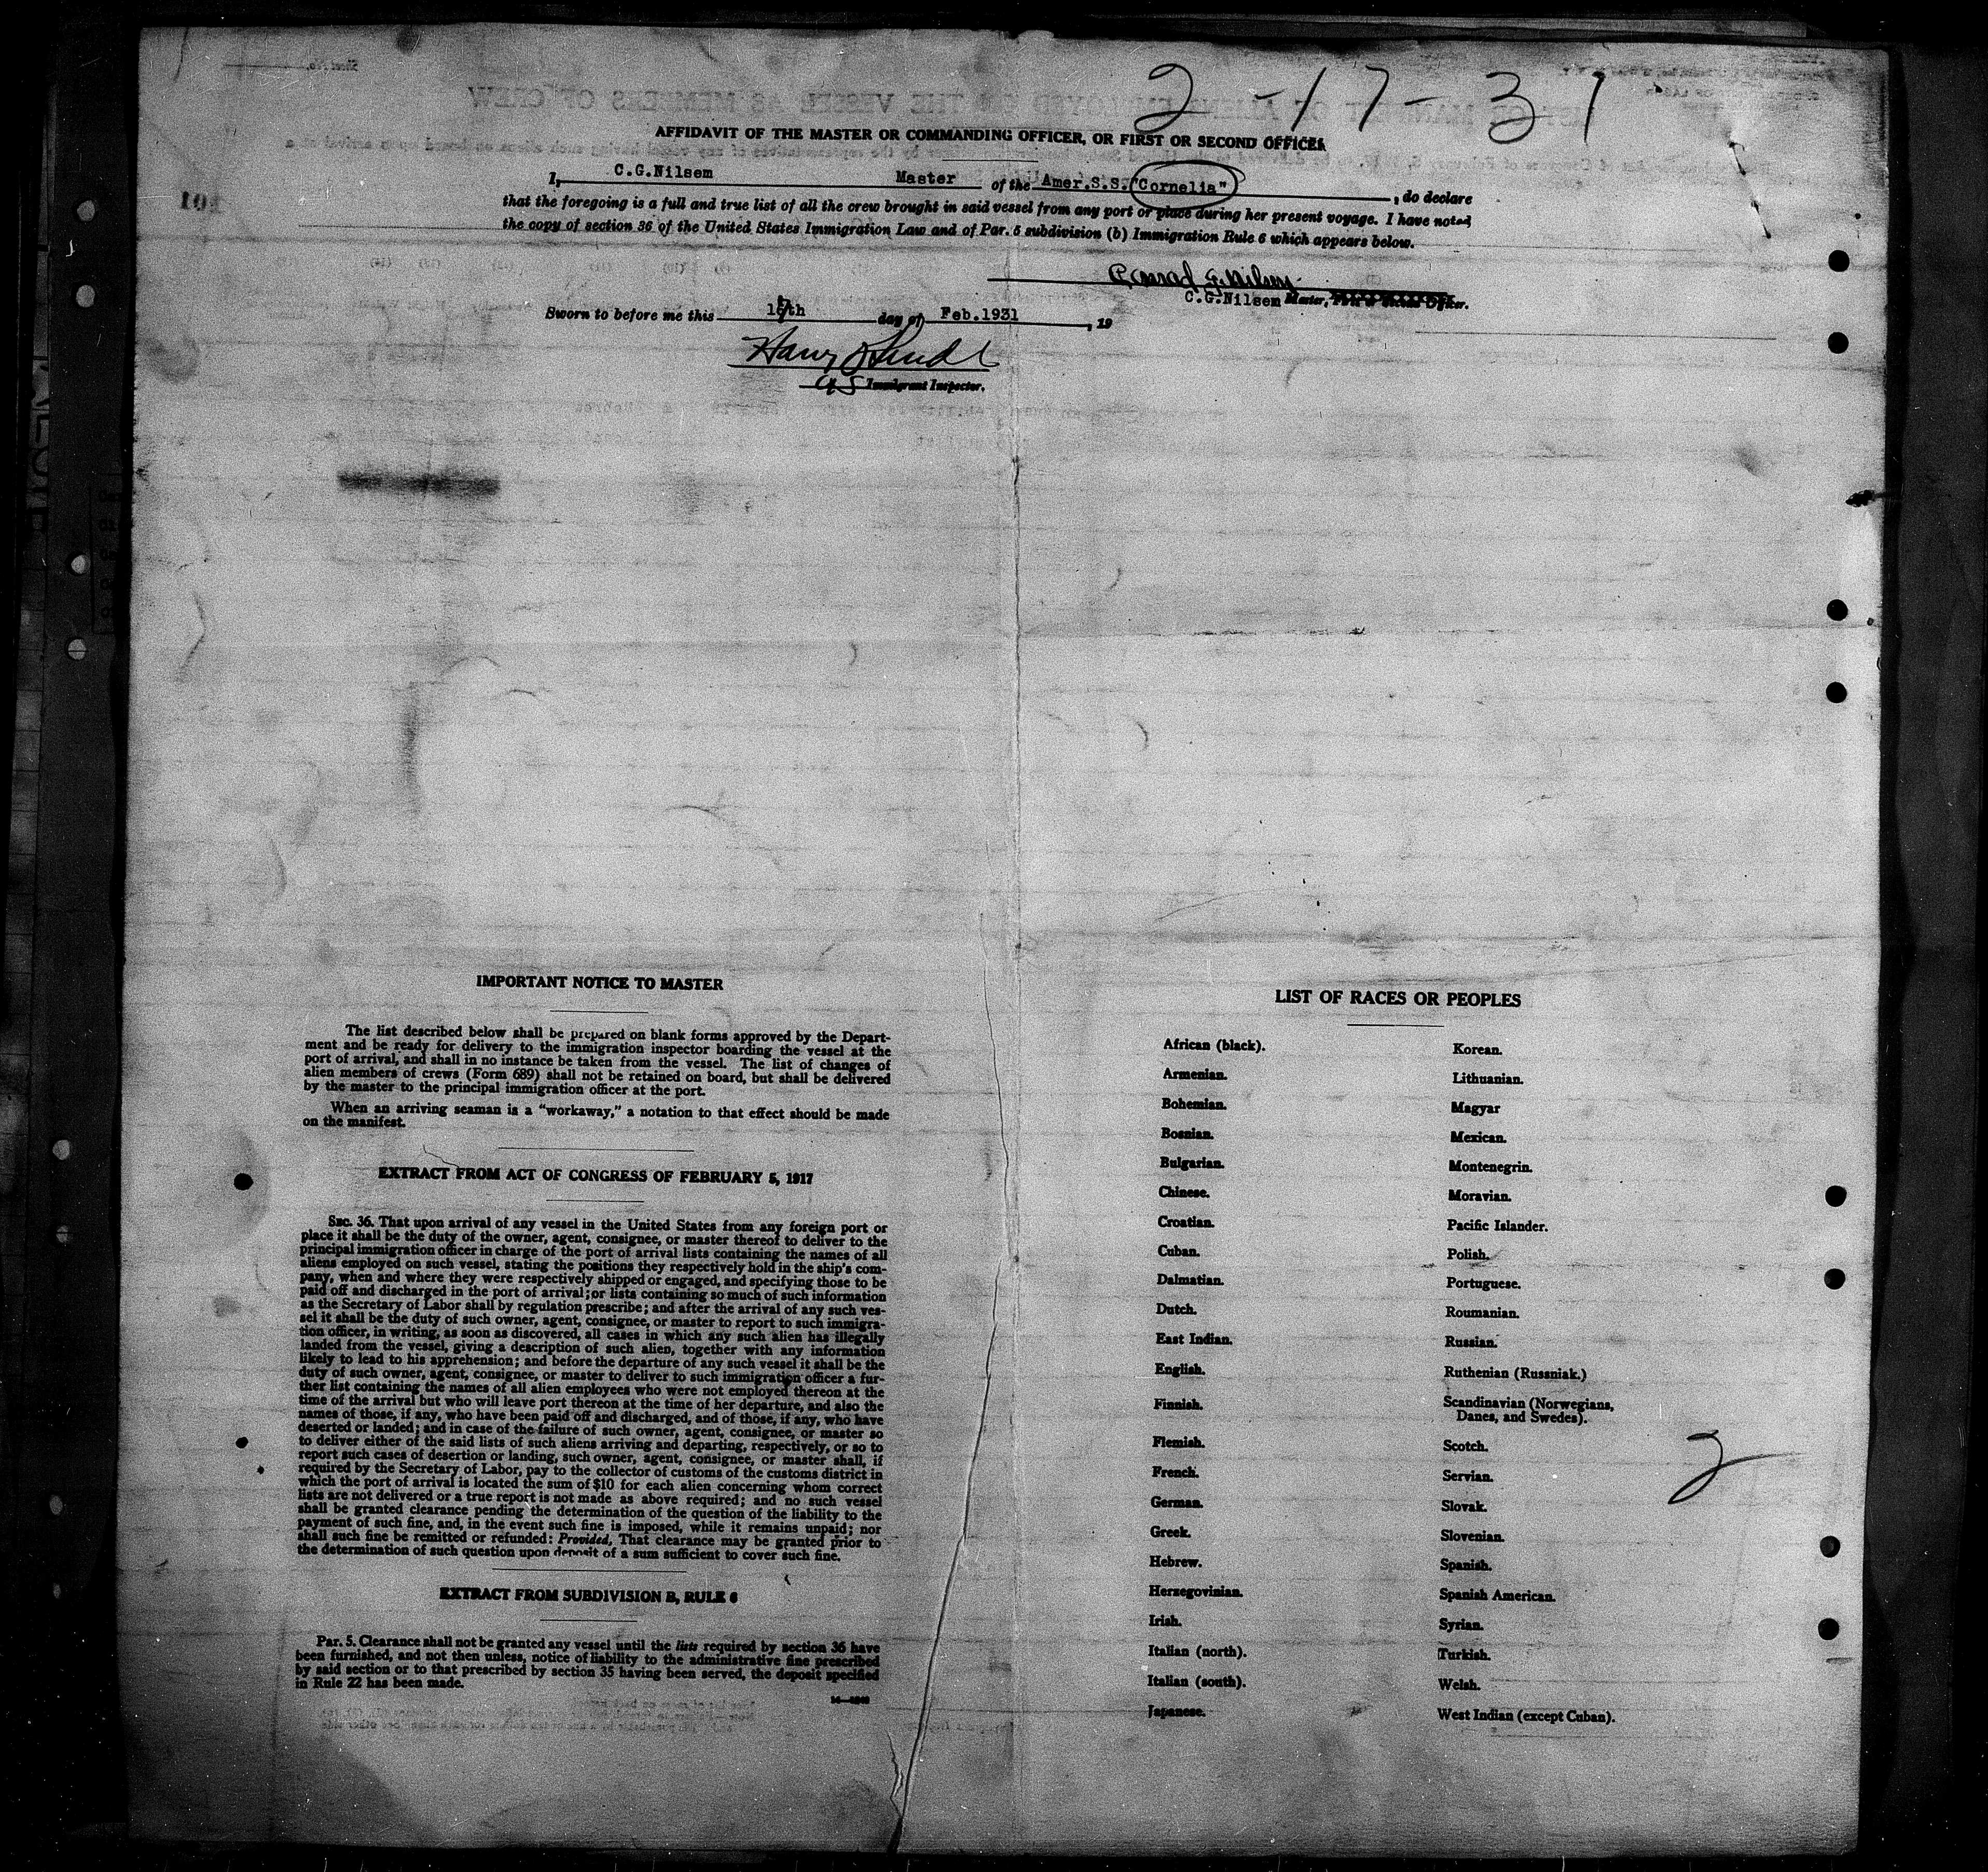 2-17-31
AFFIDAVIT OF THE MASTER OR COMMANDING OFFICER, OR FIRST OR SECOND OFFICER
I, C.G.Nilsem Master of the Amer.S.S."Cornelia", do declare
that the foregoing is a full and true list of all the crew brought in said vessel from any port or place during her present voyage. I have noted
the copy of section 36 of the United States Immigration Law and of Par. 5 subdivision (b) Immigration Rule 6 which appears below.
Conrad G. Nilsen
C.G.Nilsem Master, First or Second Officer.
Sworn to before me this 17th day of Feb.1931, 19
Harry
US Immigrant Inspector.
IMPORTANT NOTICE TO MASTER
The list described below shall be prepared on blank forms approved by the Depart-
ment and be ready for delivery to the immigration inspector boarding the vessel at the
port of arrival, and shall in no instance be taken from the vessel. The list of changes of
alien members of crews (Form 689) shall not be retained on board, but shall be delivered
by the master to the principal immigration officer at the port.
When an arriving seaman is a "workaway," a notation to that effect should be made
on the manifest.
EXTRACT FROM ACT OF CONGRESS OF FEBRUARY 5, 1917
SEC. 36. That upon arrival of any vessel in the United States from any foreign port or
place it shall be the duty of the owner, agent, consignee, or master thereof to deliver to the
principal immigration officer in charge of the port of arrival lists containing the names of all
aliens employed on such vessel, stating the positions they respectively hold in the ship's com-
pany, when and where they were respectively shipped or engaged, and specifying those to be
paid off and discharged in the port of arrival; or lists containing so much of such information
as the Secretary of Labor shall by regulation prescribe; and after the arrival of any such ves-
sel it shall be the duty of such owner, agent, consignee, or master to report to such immigra-
tion officer, in writing, as soon as discovered, all cases in which any such alien has illegally
landed from the vessel, giving a description of such alien, together with any information
likely to lead to his apprehension; and before the departure of any such vessel it shall be the
duty of such owner, agent, consignee, or master to deliver to such immigration officer a fur-
ther list containing the names of all alien employees who were not employed thereon at the
time of the arrival but who will leave port thereon at the time of her departure, and also the
names of those, if any, who have been paid off and discharged, and of those, if any, who have
deserted or landed; and in case of the failure of such owner, agent, consignee, or master so
to deliver either of the said lists of such aliens arriving and departing, respectively, or so to
report such cases of desertion or landing, such owner, agent, consignee, or master shall, if
required by the Secretary of Labor, pay to the collector of customs of the customs district in
which the port of arrival is located the sum of $10 for each alien concerning whom correct
lists are not delivered or a true report is not made as above required; and no such vessel
shall be granted clearance pending the determination of the question of the liability to the
payment of such fine, and, in the event such fine is imposed, while it remains unpaid; nor
shall such fine be remitted or refunded: Provided, That clearance may be granted prior to
the determination of such question upon deposit of a sum sufficient to cover such fine.
EXTRACT FROM SUBDIVISION B, RULE 6
Par. 5. Clearance shall not be granted any vessel until the lists required by section 36 have
been furnished, and not then unless, notice of liability to the administrative fine prescribed
by said section or to that prescribed by section 35 having been served, the deposit specified
in Rule 22 has been made.
LIST OF RACES OR PEOPLES
African (black).
Armenian.
Bohemian.
Bosnian.
Bulgarian.
Chinese.
Croatian.
Cuban.
Dalmatian.
Dutch.
East Indian.
English.
Finnish.
Flemish.
French.
German.
Greek.
Hebrew.
Herzegovinian.
Irish.
Italian (north).
Italian (south).
Japanese.
Korean.
Lithuanian.
Magyar
Mexican.
Montenegrin.
Moravian.
Pacific Islander.
Polish.
Portuguese.
Roumanian.
Russian.
Ruthenian (Russniak.)
Scandinavian (Norwegians,
Danes, and Swedes).
Scotch.
Servian.
Slovak.
Slovenian.
Spanish.
Spanish American.
Syrian.
Turkish.
Welsh.
West Indian (except Cuban).
2